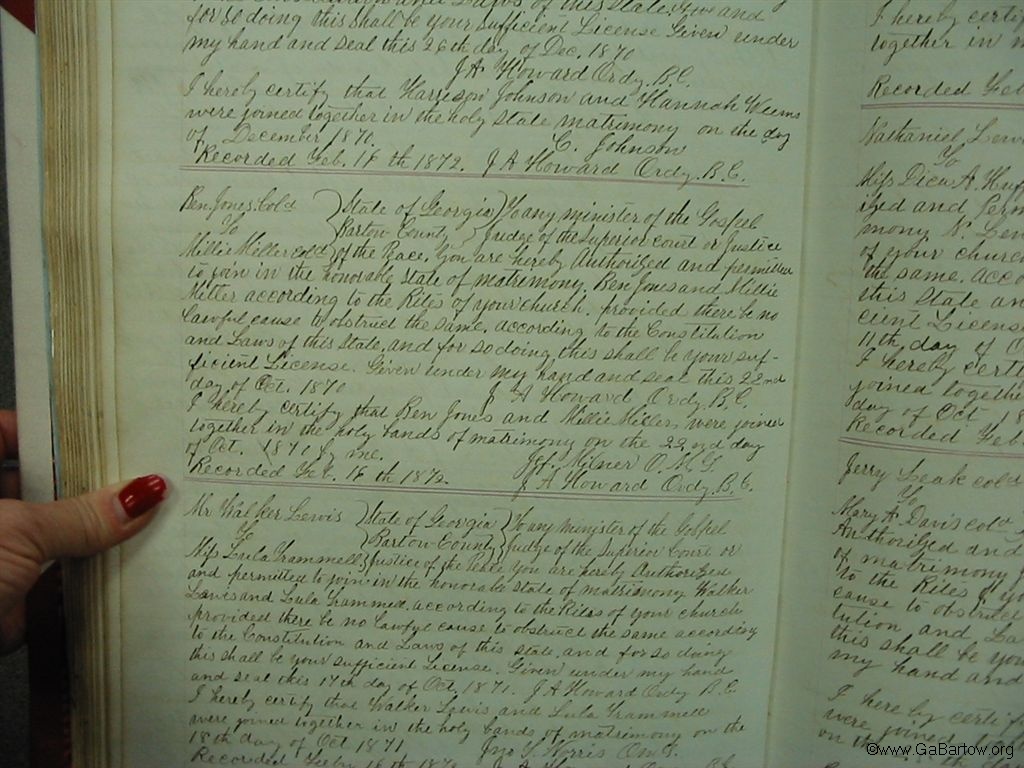 for so doing this shall be your sufficient License Given under
my hand and seal this 26th day of Dec. 1870
J A Howard Ordy. B. C.
I hereby certify that Harrison Johnson and Hannah Weems
were joined together in the holy state matrimony on the day
of December 1870.
C. Johnson
Recorded Feb. 16th 1872. J A Howard Ordy. B. C.
Ben Jones, Cold State of Georgia To any minister of the Gospel
To Bartow County Judge of the Superior court or Justice
Millie Miller cold of the Peace. You are hereby Authorized and permitted
to join in the honorable State of matrimony, Ben Jones and Millie
Miller according to the Rites of your church. provided there be no
lawful cause to obstruct the same, according to the Constitution
and Laws of this State, and for so doing, this shall be your suf-
ficient License. Given under my hand and seal this 22nd
day of Oct. 1870 J A Howard Ordy. B. C.
I hereby certify that Ben Jones and Millie Miller, were joined
together in the holy bands of matrimony on the 22nd day
of Oct. 1871 by me. Milner
Recorded Feb. 16th 1872. J A Howard Ordy. B. C.
Mr Walker Lewis State of Georgia To any minister of the Gospel
To Bartow County Judge of the Superior Court or
Miss Lula Trammell Justice of the Peace You are hereby Authorized
and permitted to join in the honorable state of matrimony Walker
Lewis and Lula Trammell, according to the Rites of your church
provided there be no lawful cause to obstruct the same according
to the Constitution and Laws of this state, and for so doing
this shall be your sufficient License. Given under my hand
and seal this 17th day of Oct, 1871. J A Howard Ordy B. C
I hereby certify that Walker Lewis and Lula Trammell
were joined together in the holy bands of matrimony on the
18th day of Oct 1871 Jno T. Norris
Recorded Feby 16th
I hereby certif
together in
Recorded Feb
Nathaniel Lew
To
Miss A.
ized and
mony N. Lew
of your church
the same. acco
this State an
cient License
11th day of O
I hereby certi
joined together
day of Oct 18
Recorded Feb
Jerry Leak cold
To
Mary A. Davis cold
Authorized and
of matrimony
to the Rites of yo
cause to obstruc
tution and La
this shall be you
my hand and
I hereby certif
were joined to
on the
©www.GaBartow.org